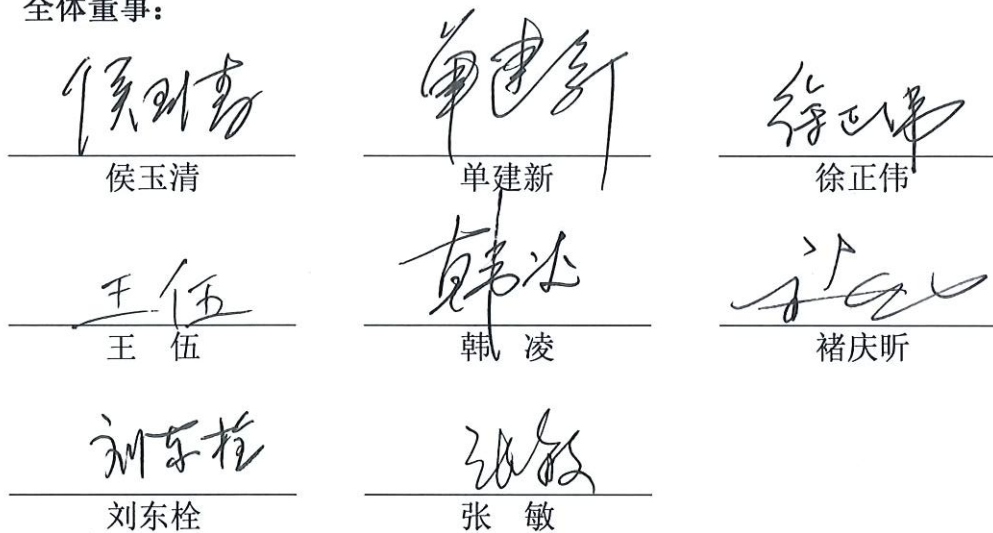 全体董事：
侯玉清 单建新 徐正伟
侯玉清 单建新 徐正伟
王伍 韩凌
王 伍 韩 凌 褚庆昕
刘东栓 张敏
刘东栓 张 敏